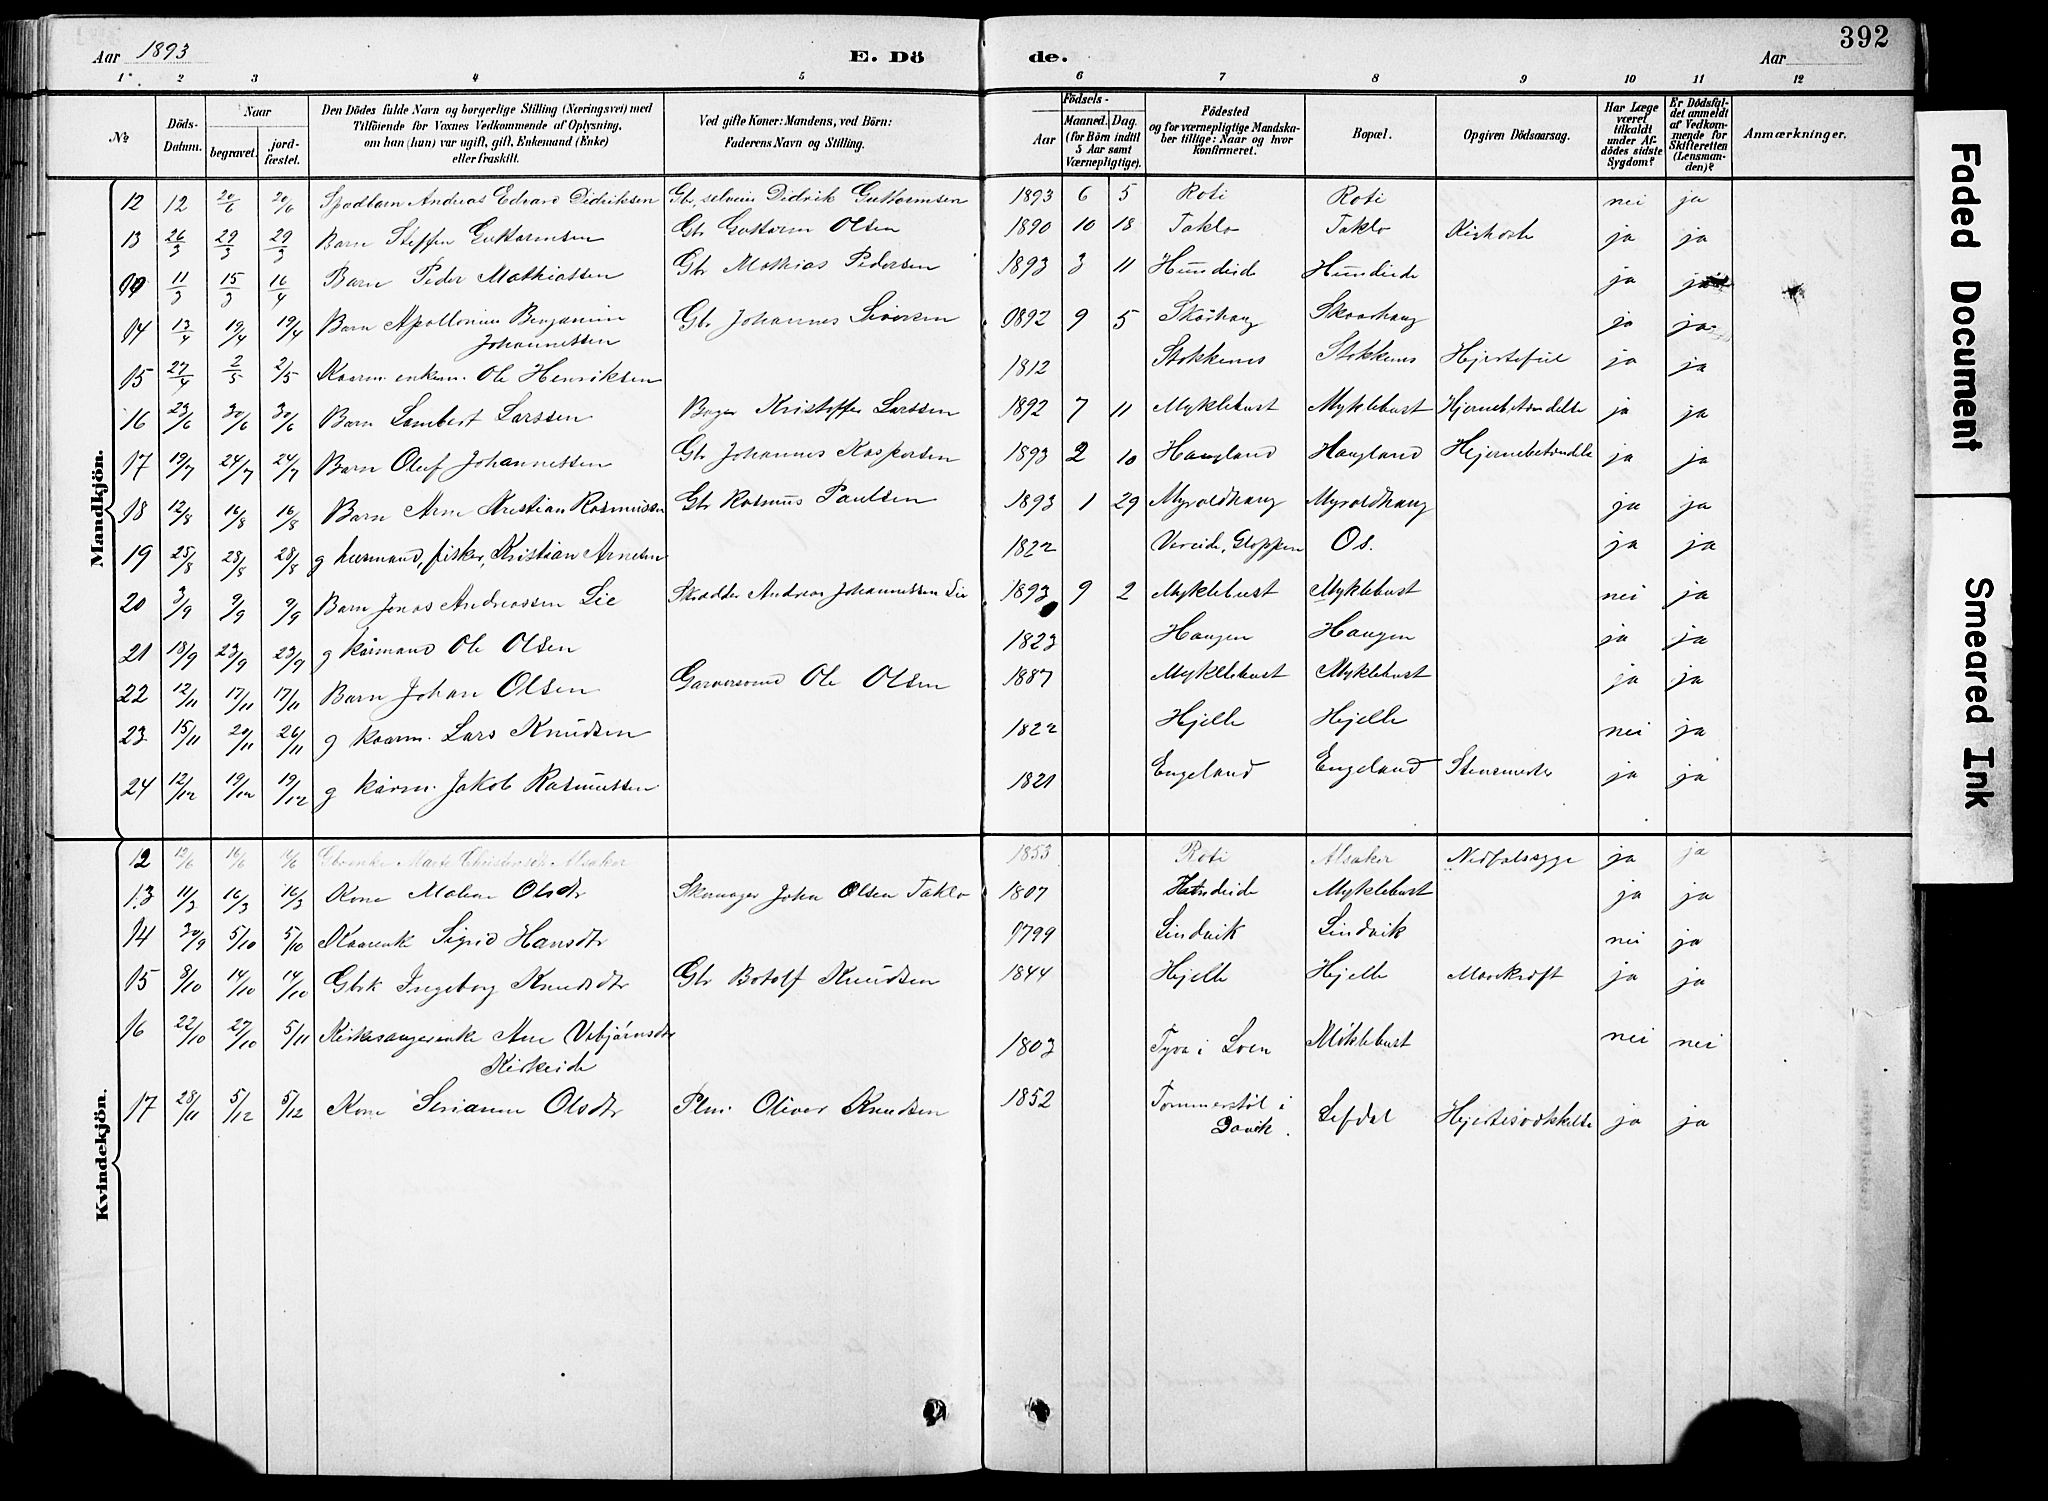 392
Aar 1893 E. Döde. Aar
1 2 3 4 5 6 7 8 9 10 11 12
No Döds-Datum. Naar begravet. jordfæstet. Den Dödes fulde Navn og borgerlige Stilling (Næringsvei) med Tilföiende for Voxnes Vedkommende af Oplysning, om han (hun) var ugift, gift, Enkemand (Enke) eller fraskilt. Ved gifte Koner: Mandens, ved Börn: Faderens Navn og Stilling. Födsels- Aar Maaned. Dag. (for Börn indtil 5 Aar samt Værnepligtige). Födested og for værnepligtige Mandskaber tillige: Naar og hvor konfirmeret. Bopæl. Opgiven Dödsaarsag. Har Læge været tilkaldt under Afdödes sidste Sygdom? Er Dödsfaldet anmeldt af Vedkommende for Skifteretten (Lensmanden)? Anmærkninger.
Mandkjön.
12 12 20/6 20/6 Spædbarn Andreas Edvard Didriksen Gbr, selveier Didrik Guttormsen 1893 6 5 Roti Roti nei ja
13 26/3 29/3 29/3 Barn Steffen Guttormsen Gbr Guttorm Olsen 1890 10 18 Taklo Taklo Kighoste ja ja
11/3 15/3 16/4 Barn Peder Mathiassen Gbr Mathias Pedersen 1893 3 11 Hundeide Hundeide ja ja
14 13/4 19/4 19/4 Barn Apollonius Benjamin Gbr Johannes Siversen 1892 9 5 Skårhaug Skaarhaug ja ja
Johannessen
15 27/4 2/5 2/5 Kaarm. enkem. Ole Henriksen 1812 Stokkenes Stokkenes Hjertefeil ja ja
16 23/6 30/6 30/6 Barn Lambert Larssen Bager Kristoffer Larssen 1892 7 11 Myklebust Myklebust Hjernebetændelse ja ja
17 19/7 24/7 24/7 Barn Oluf Johannessen Gbr Johannes Kaspersen 1893 2 10 Haugland Haugland Hjernebetændelse ja ja
18 12/8 16/8 16/8 Barn Arne Kristian Rasmussen Gbr Rasmus Paulsen 1893 1 29 Myroldhaug Myroldhaug ja ja
19 25/8 28/8 28/8 g husmand, fisker, Kristian Arnesen 1822 Vereide, Gloppen Os. ja ja
20 3/9 9/9 9/9 Barn Jonas Andreassen Lie Skrædder Andreas Johannessen Lie 1893 9 2 Myklebust Myklebust nei ja
21 18/9 23/9 23/9 g kårmand Ole Olsen 1823 Haugen Haugen ja ja
22 12/11 17/11 17/11 Barn Johan Olsen Garversvend Ole Olsen 1887 Myklebust Myklebust ja ja
23 15/11 20/11 26/11 g kaarm. Lars Knudsen 1822 Hjelle Hjelle nei ja
24 12/12 19/12 19/12 g kårm. Jakob Rasmussen 1821 Engeland Engeland Stensmerter ja ja
Kvindekjön.
12 12/6 16/6 16/6 Gbrenke Marte Christensd. Alsaker 1853 Roti Alsaker Nedfalssyge ja ja
13 11/3 16/3 16/3 Kone Maline Olsdtr Skomager John Olsen Taklo 1807 Hundeide Myklebust ja ja
14 30/9 5/10 5/10 Kaarenk Sigrid Hansdtr 1799 Lindvik Lindvik nei ja
15 8/10 14/10 14/10 Gbrk Ingeborg Knudsdtr Gbr Botolf Knudsen 1844 Hjelle Hjelle Mavekræft ja ja
16 22/10 27/10 5/11 Kirkesangerenke Ane Vebjørnsdtr 1803 Tyva i Loen Möklebust nei nei
Kirkeide
17 28/11 5/12 5/12 Kone Serianne Olsdtr Plm. Oliver Knudsen 1852 Tommerstøl i Lefdal ja ja
Davik.
Faded Document
Smeared Ink